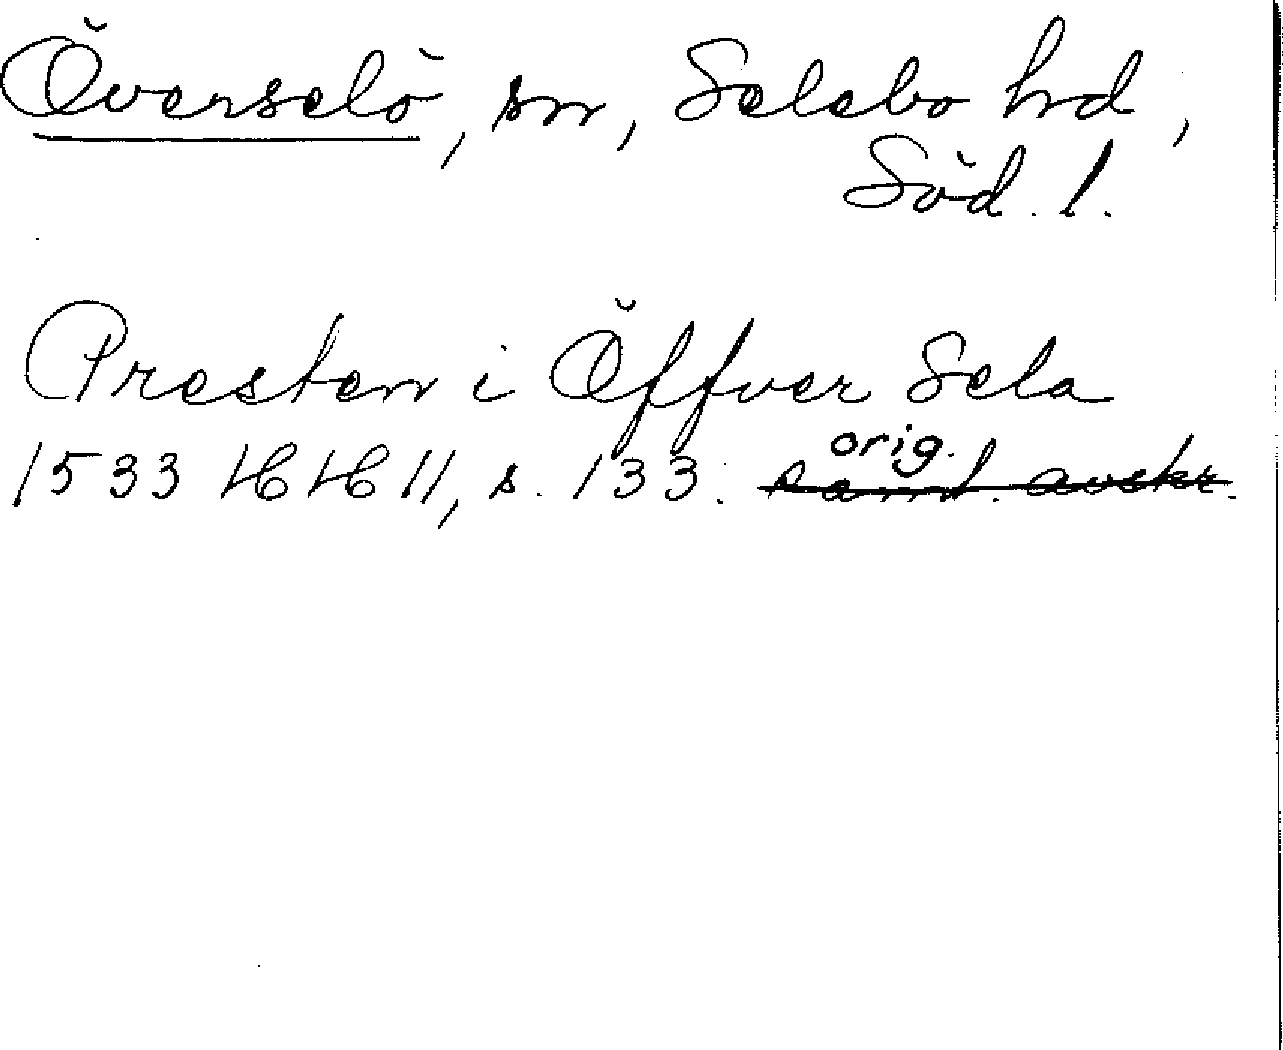 Överselö, sn, Selebo hd,
Söd. l.
Presten i Öffver Sela
orig.
1533 HH 11, s. 133. samt. avskr.